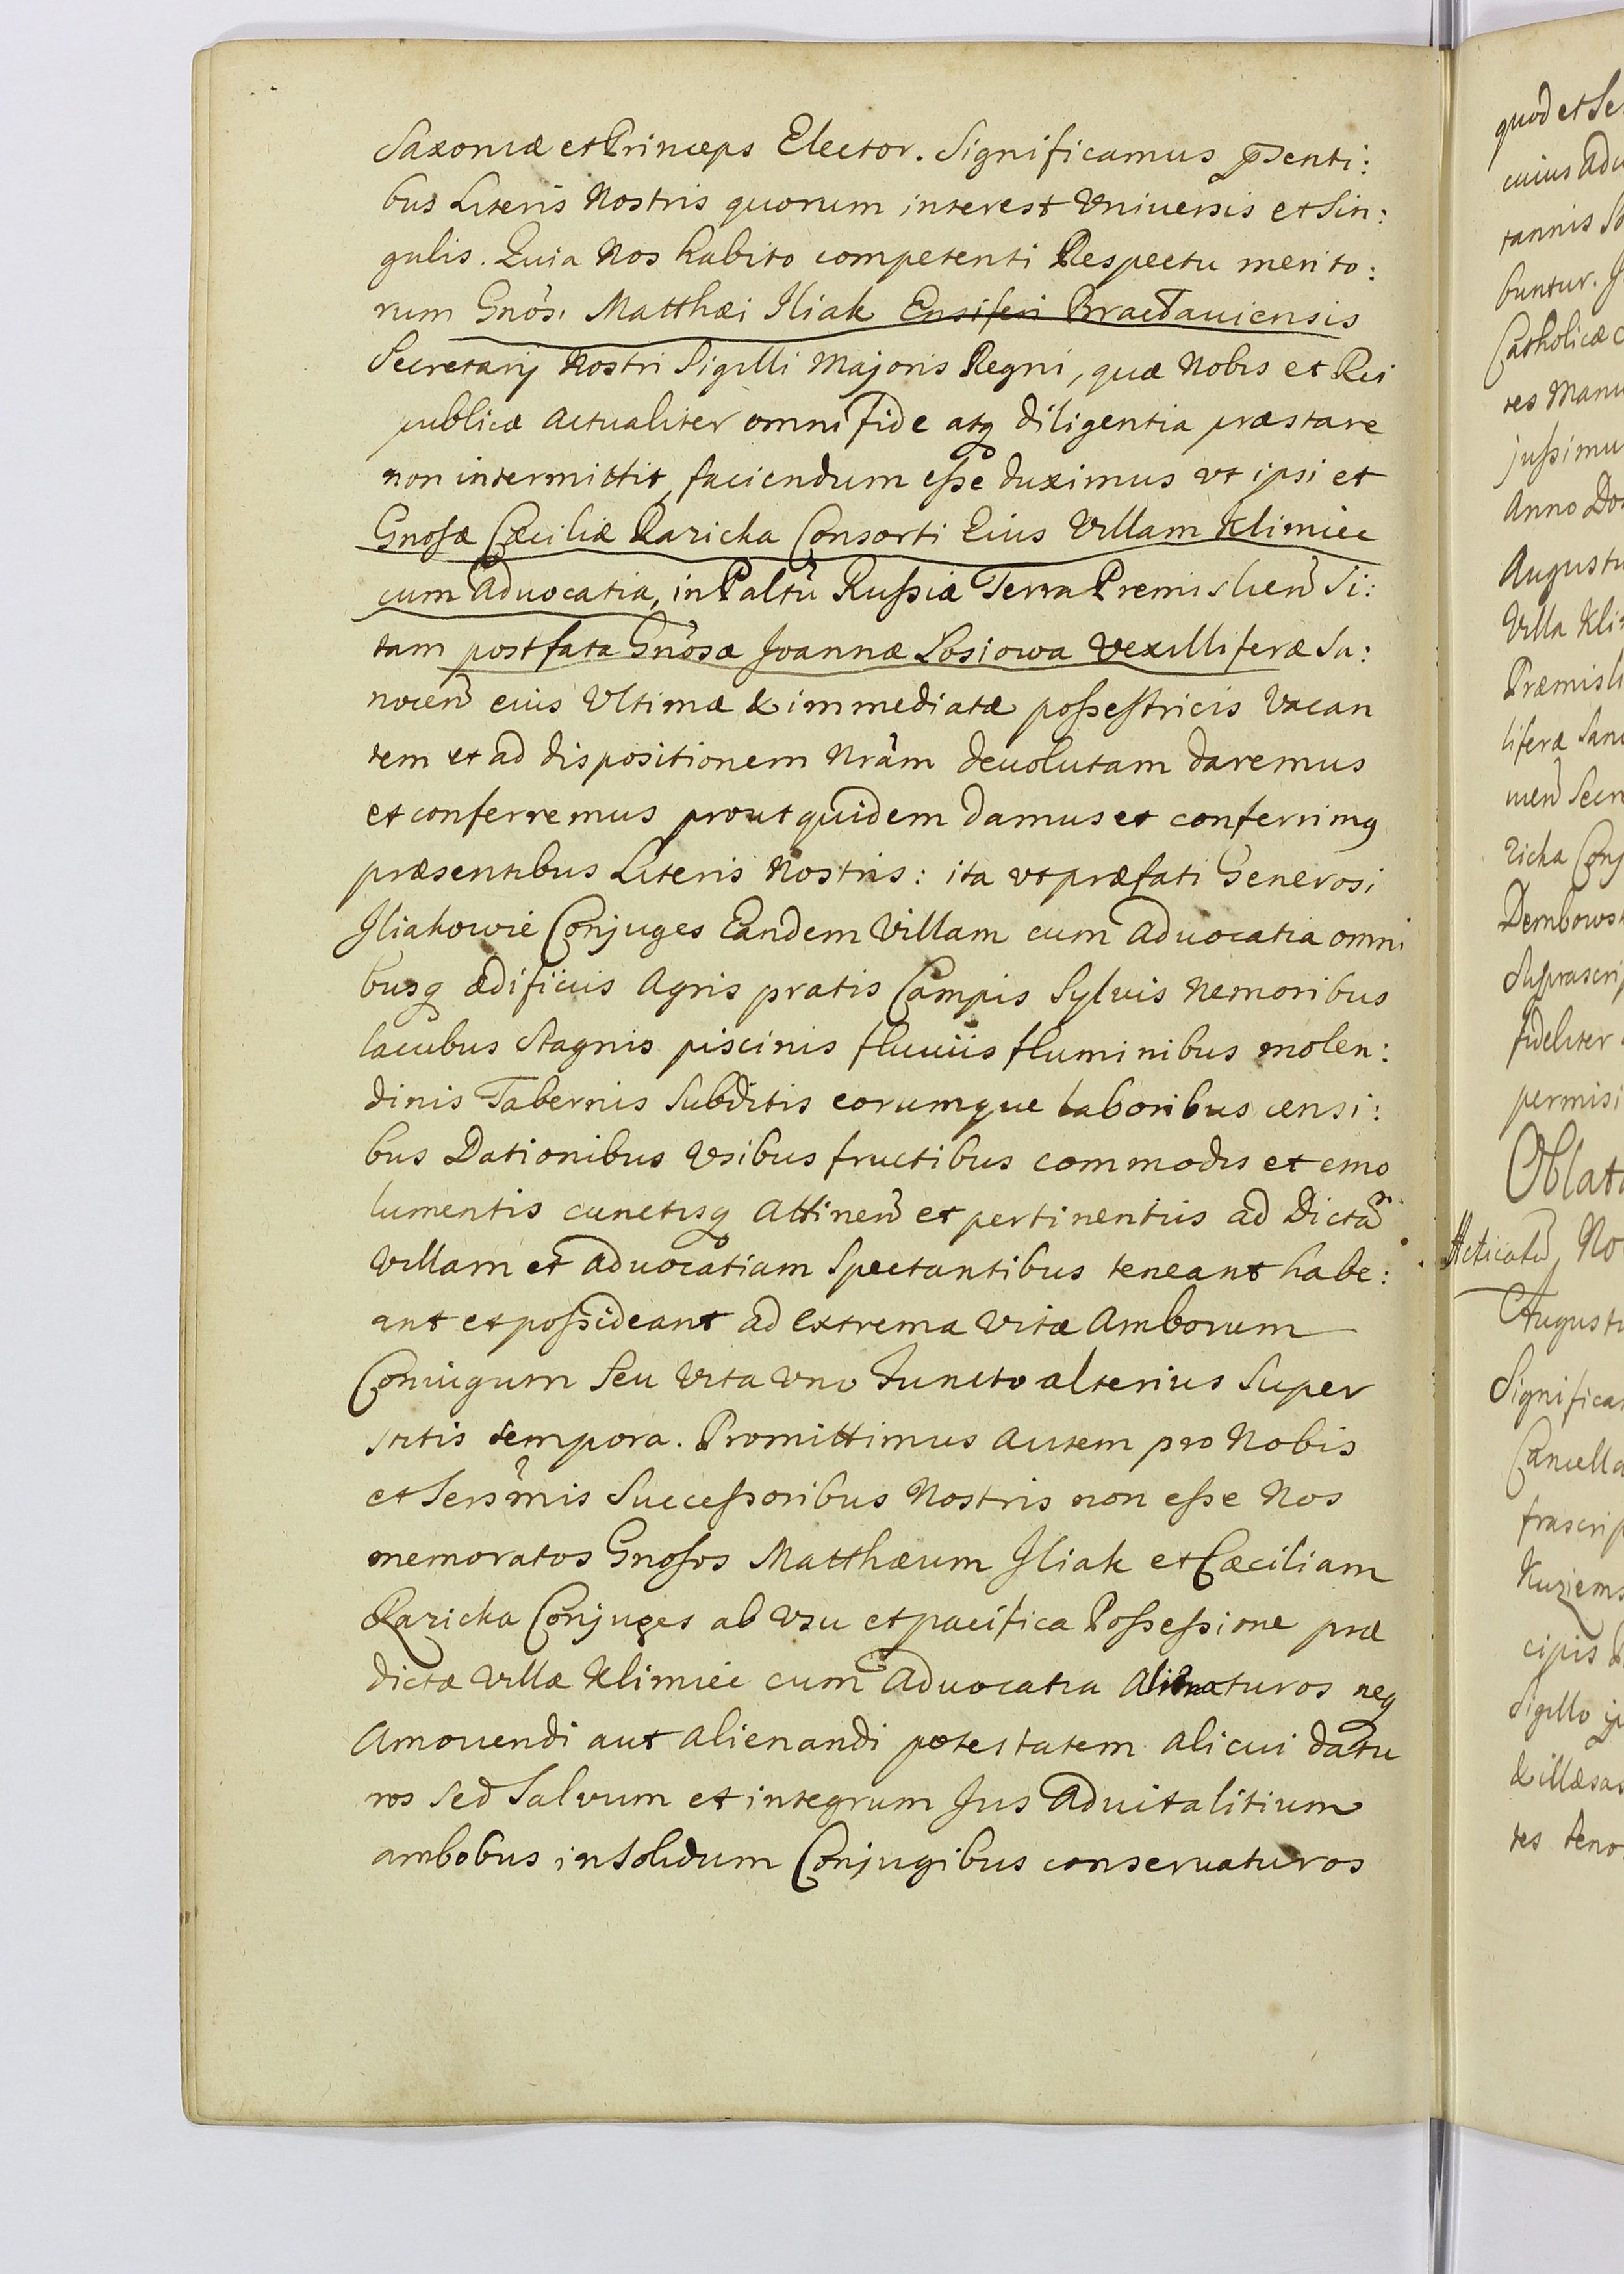 Saxoniæ et Princeps Elector. Significamus pñsenti:
bus Literis Nostris quorum interest Vniuersis et Sin:
gulis. Quia Nos habito competenti Respectu merito:
rum Gnosi Matthæi Iliak Ensiferi Bracdauiensis
Secretarij Nostri Sigilli Majoris Regni, quæ Nobis et Rei
publicæ actualiter omni fide atq diligentia præstare
non intermittit, faciendum esse duximus vt ipsi et
Gnosæ Cæciliæ Razicka Consorti Eius Villam Klimiec
cum Aduocatia, in Paltu Russiæ Terra Premislien Si:
tam post fata Gnosæ Joannæ Losiowa Vexilliferæ Sa:
nocen eius Vltimæ & immediatæ possestricis Vacan
tem et ad dispositionem Nram deuolutam daremus
et conferremus prout quidem damus et conferrimq
præsentibus Literis Nostris: ita vt præfati Generosi
Iliakowie Conjuges Eandem Villam cum Aduocatia omni
busq ædificiis Agris pratis Campis Syluis Nemoribus
lacubus Stagnis piscinis fluuiis fluminibus molen:
dinis Tabernis Subditis eorumque laboribus censi:
bus Dationibus Vsibus fructibus commodis et emo
lumentis cunctisq Attinen et pertinentiis ad Dictam
Villam et Aduocatiam Spectantibus teneant habe:
ant et possideant ad Extrema Vitæ Amborum
Coniugum Seu Vita Vno functo alterius Super
stitis tempora. Promittimus Autem pro Nobis
et Sersmis Successoribus Nostris non esse Nos
memoratos Gnosos Matthæum Iliak et Cæciliam
Razicka Conjuges ab Vsu et pacifica Possessione præ
dictæ Villæ Klimiec cum Aduocatia Alienaturos neq
Amouendi aut alienandi potestatem alicui datu
ros Sed Saluum et integrum Jus Aduitalitium
ambobus in Solidum Conjugibus conseruaturos
quod et
cuius
tannis
buntur.
Catholicæ
res
jussimu
Anno
Augustu
Villa
Præmisli
liferæ
Secr
ricka
Dembows
Suprascrip
fideliter
permisi
Oblata
Acticatu No
Augustu
Significa
Cancella
frascrip
Kuziems
cipis
Sigillo
& illæsas
tes teno